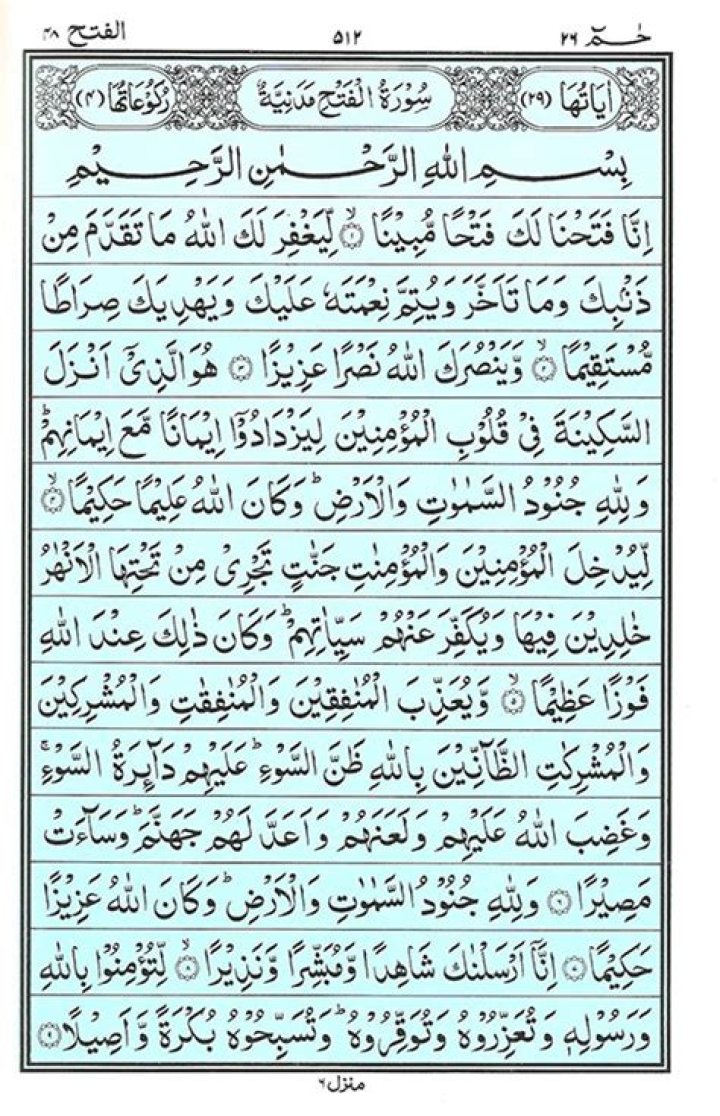 حٰمٓ ٢٦ ٥١٢ الفتح ٤٨
اٰيَاتُهَا (٢٩) سُوْرَةُ الْفَتْحِ مَدَنِيَّةٌ رُكُوْعَاتُهَا (٤)
بِسْمِ اللّٰهِ الرَّحْمٰنِ الرَّحِيْمِ
اِنَّا فَتَحْنَا لَكَ فَتْحًا مُّبِيْنًا ۙ﴿١﴾ لِّيَغْفِرَ لَكَ اللّٰهُ مَا تَقَدَّمَ مِنْ
ذَنْۢبِكَ وَمَا تَاَخَّرَ وَيُتِمَّ نِعْمَتَهٗ عَلَيْكَ وَيَهْدِيَكَ صِرَاطًا
مُّسْتَقِيْمًا ۙ﴿٢﴾ وَّيَنْصُرَكَ اللّٰهُ نَصْرًا عَزِيْزًا ﴿٣﴾ هُوَ الَّذِيْۤ اَنْزَلَ
السَّكِيْنَةَ فِيْ قُلُوْبِ الْمُؤْمِنِيْنَ لِيَزْدَادُوْۤا اِيْمَانًا مَّعَ اِيْمَانِهِمْ ؕ
وَلِلّٰهِ جُنُوْدُ السَّمٰوٰتِ وَالْاَرْضِ ؕ وَكَانَ اللّٰهُ عَلِيْمًا حَكِيْمًا ۙ﴿٤﴾
لِّيُدْخِلَ الْمُؤْمِنِيْنَ وَالْمُؤْمِنٰتِ جَنّٰتٍ تَجْرِيْ مِنْ تَحْتِهَا الْاَنْهٰرُ
خٰلِدِيْنَ فِيْهَا وَيُكَفِّرَ عَنْهُمْ سَيِّاٰتِهِمْ ؕ وَكَانَ ذٰلِكَ عِنْدَ اللّٰهِ
فَوْزًا عَظِيْمًا ۙ﴿٥﴾ وَّيُعَذِّبَ الْمُنٰفِقِيْنَ وَالْمُنٰفِقٰتِ وَالْمُشْرِكِيْنَ
وَالْمُشْرِكٰتِ الظَّآنِّيْنَ بِاللّٰهِ ظَنَّ السَّوْءِ ؕ عَلَيْهِمْ دَآىِٕرَةُ السَّوْءِ ۚ
وَغَضِبَ اللّٰهُ عَلَيْهِمْ وَلَعَنَهُمْ وَاَعَدَّ لَهُمْ جَهَنَّمَ ؕ وَسَآءَتْ
مَصِيْرًا ﴿٦﴾ وَلِلّٰهِ جُنُوْدُ السَّمٰوٰتِ وَالْاَرْضِ ؕ وَكَانَ اللّٰهُ عَزِيْزًا
حَكِيْمًا ﴿٧﴾ اِنَّاۤ اَرْسَلْنٰكَ شَاهِدًا وَّمُبَشِّرًا وَّنَذِيْرًا ۙ﴿٨﴾ لِّتُؤْمِنُوْا بِاللّٰهِ
وَرَسُوْلِهٖ وَتُعَزِّرُوْهُ وَتُوَقِّرُوْهُ ؕ وَتُسَبِّحُوْهُ بُكْرَةً وَّاَصِيْلًا ﴿٩﴾
منزل ٦